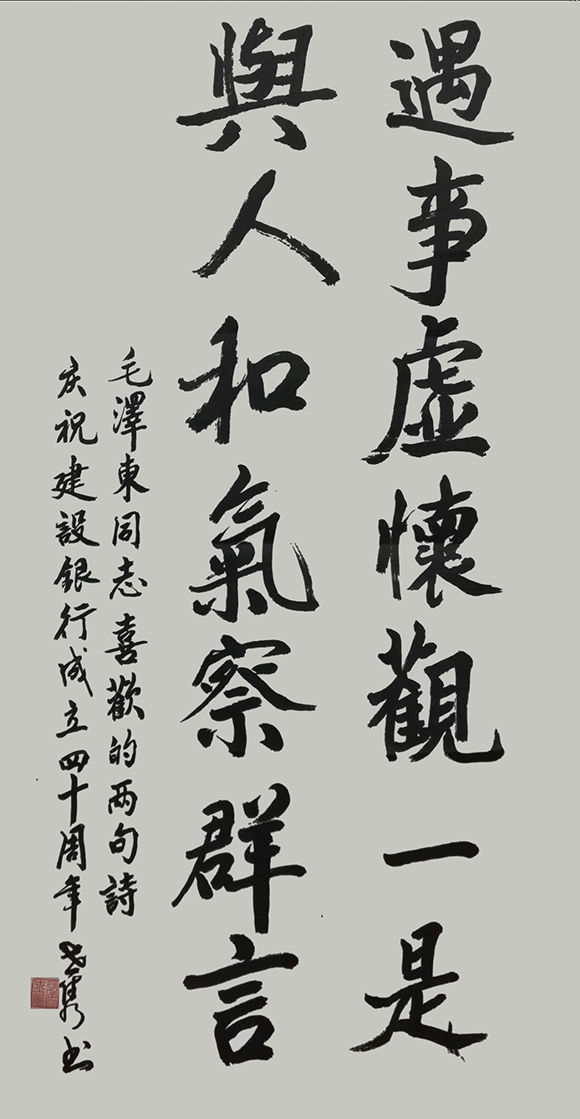 遇事虛懷觀一是
與人和氣察群言
毛澤東同志喜歡的两句詩
庆祝建設銀行成立四十周年 书